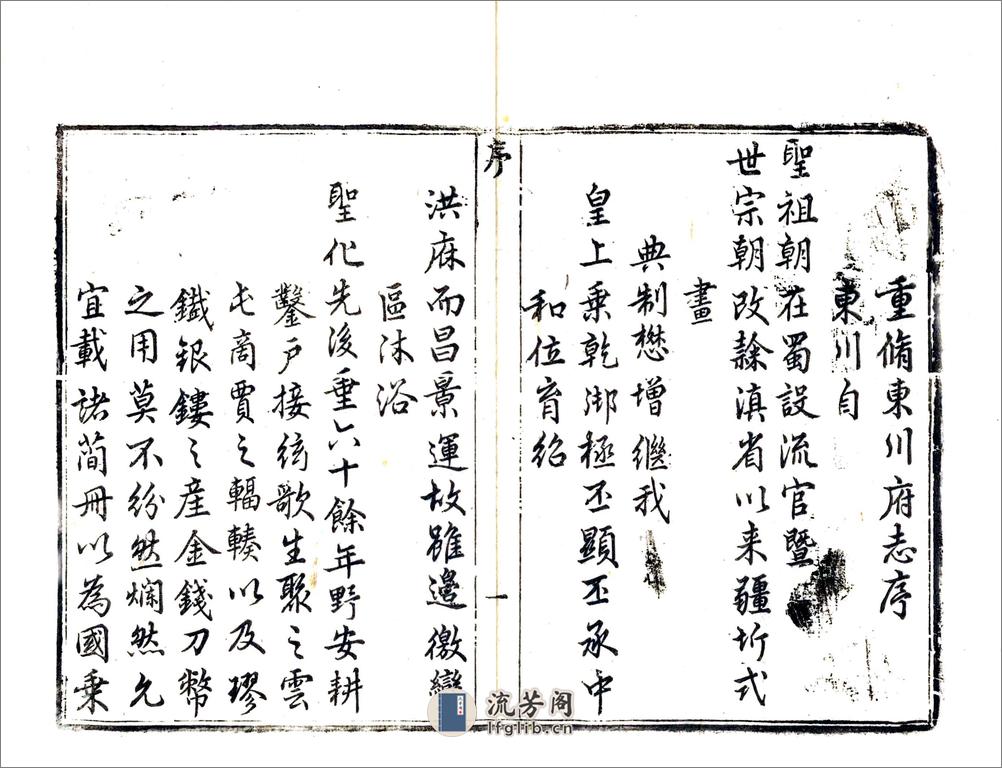 重脩東川府志序
東川自
聖祖朝在蜀設流官暨
世宗朝改隸滇省以来疆圻式
畫
典制懋増繼我
皇上乗乾御極丕顯丕承中
和位育紹
序
一
洪庥而昌景運故雖邉徼蠻
區沐浴
聖化先後垂六十餘年野安耕
鑿户接絃歌生聚之雲
屯商賈之輻輳以及璆
鐵銀鏤之産金錢刀幣
之用莫不紛然爛然允
宜載諸簡冊以為國乗
流芳阁
lfglib.cn